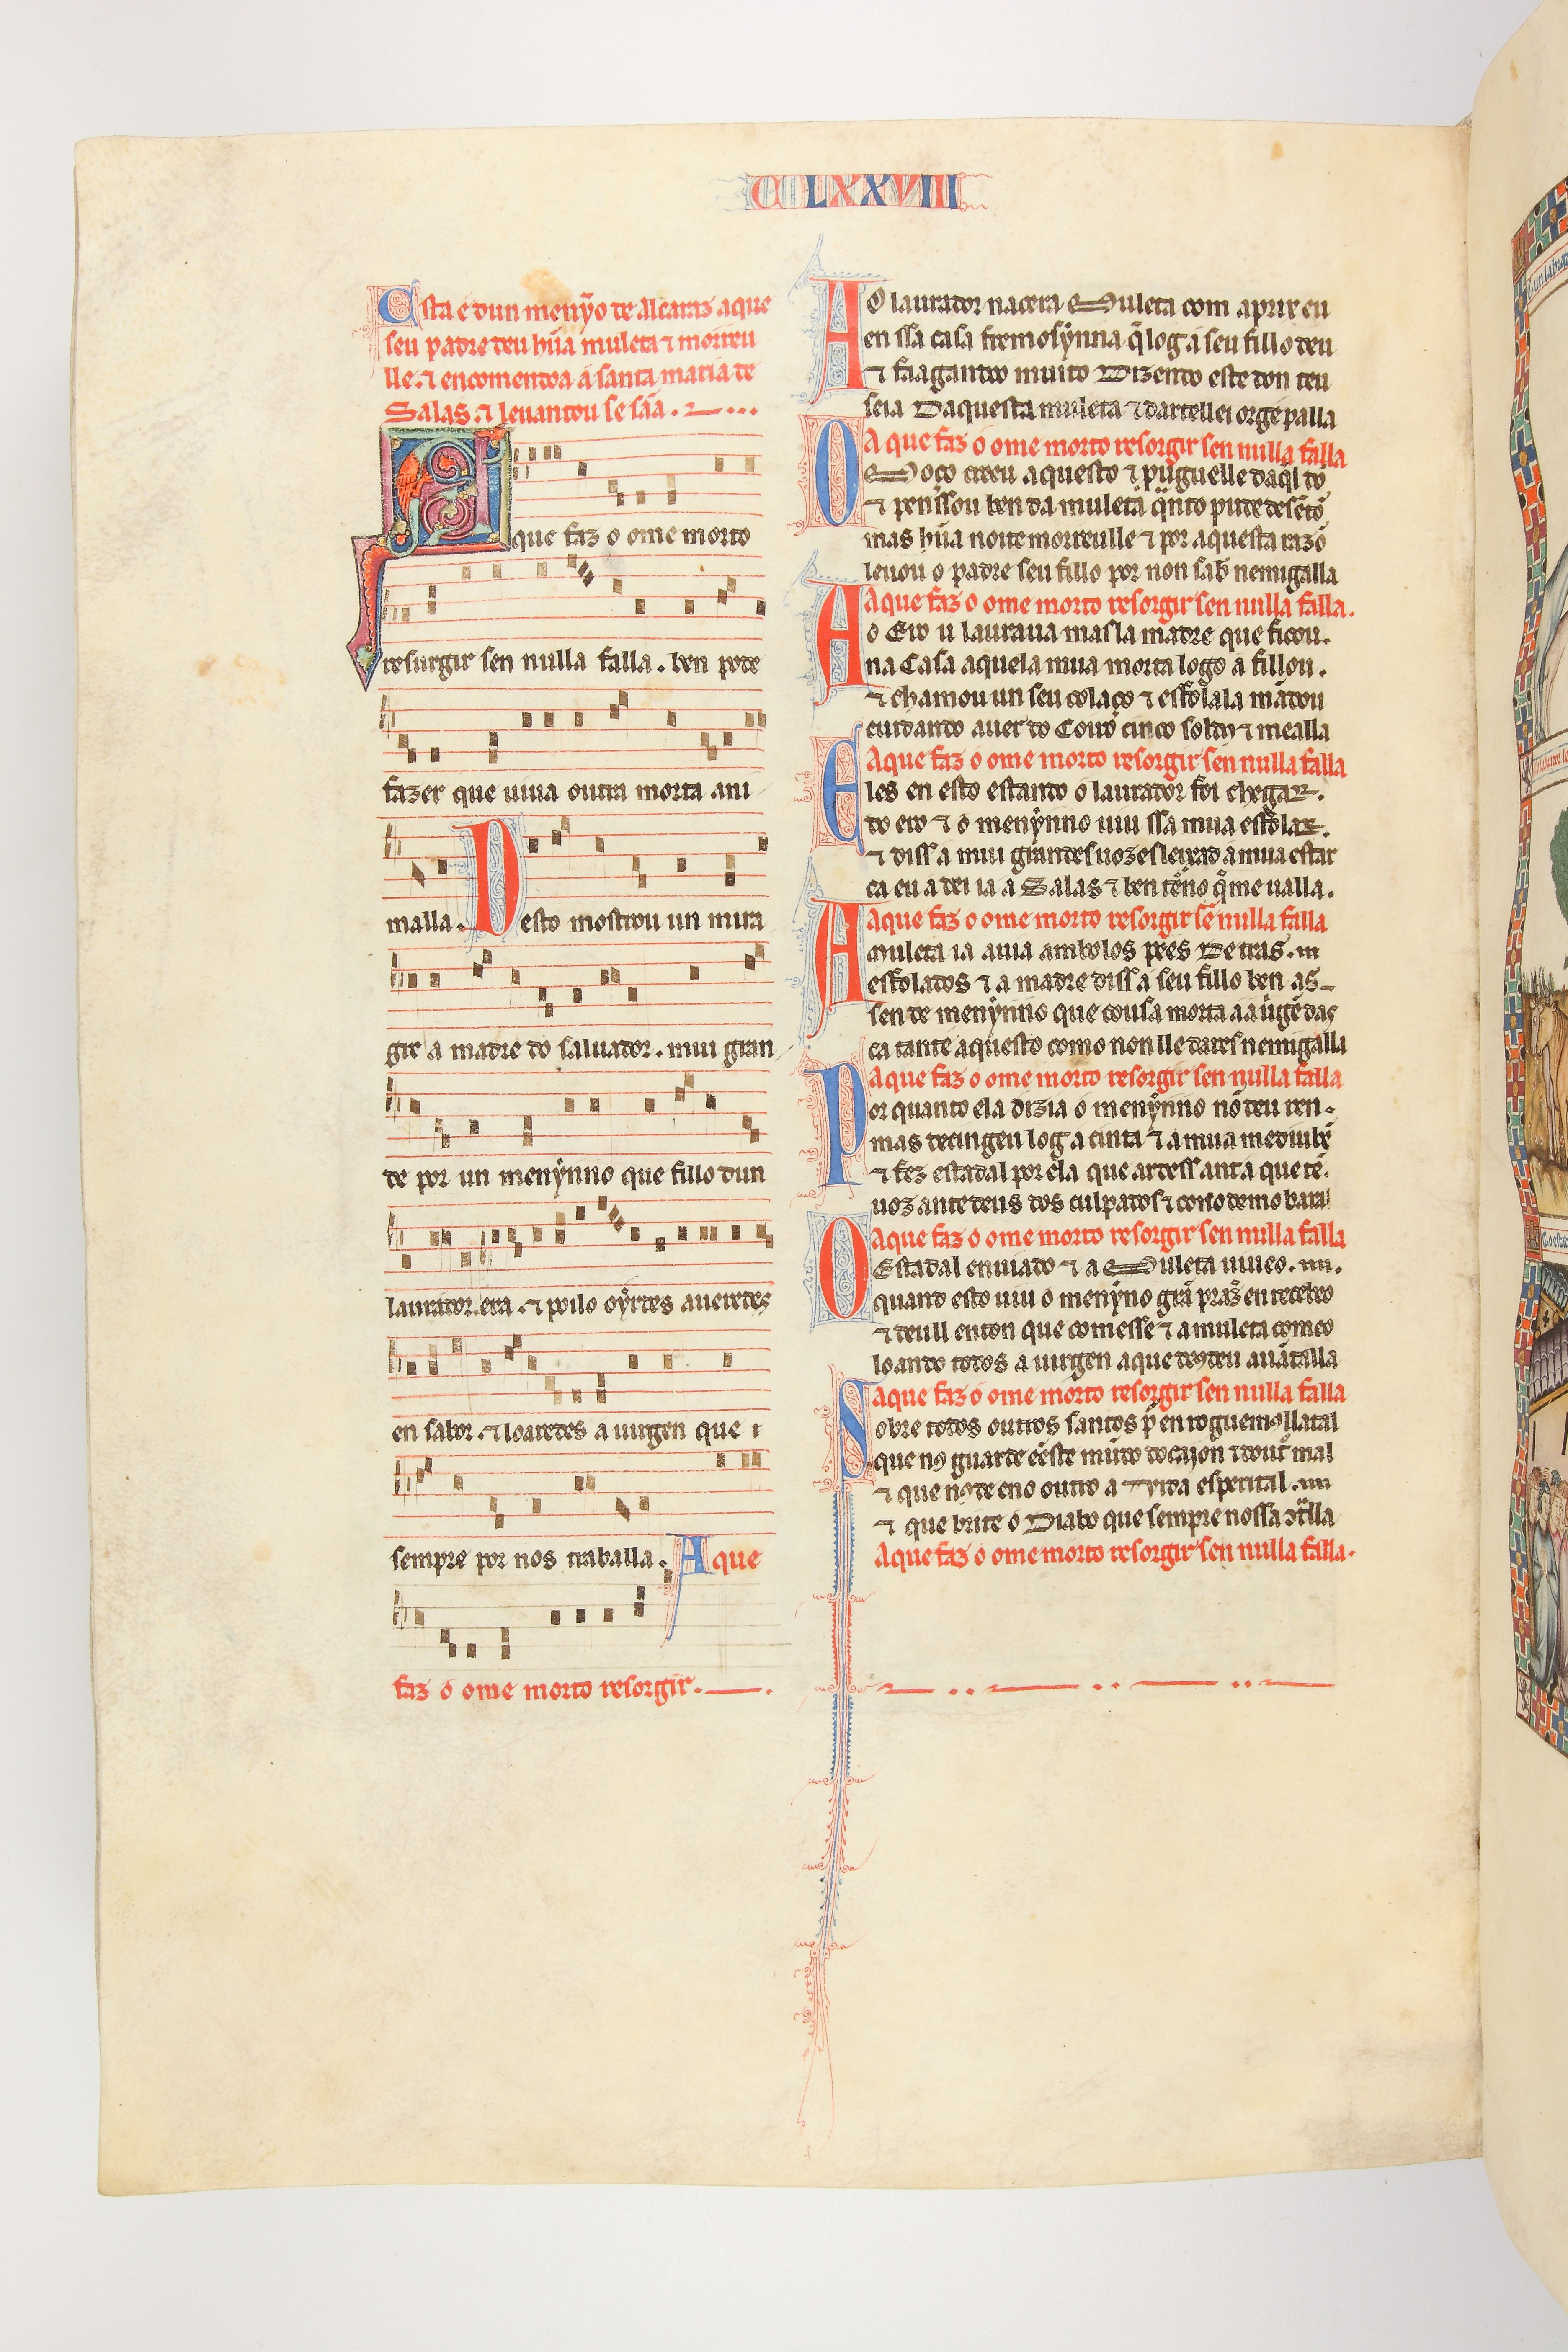 C LXXVIII
Esta e dun menỹo de Alcaraz a que
seu padre deu hũa muleta ⁊ morreu
lle. ⁊ encomendoa a santa maria de
Salas ⁊ levantou se sãa.
A que faz o ome morto
resurgir sen nulla falla. ben pode
fazer que uiua outra morta ani
malla. Desto mostrou un mira
gre a madre do saluador. mui gran
de por un menỹnno que fillo dun
laurador era. ⁊ poilo oỹrdes aueredes
en sabor. ⁊ loaredes a uirgen que
sempre por nos traballa. A que
faz o ome morto resorgir.
Ao laurador nacera Muleta com aprix eu
en ssa casa fremosỹnna q̃ log a seu fillo deu
⁊ faagando o muito Dizendo este don teu
seia Daquesta muleta ⁊ dartellei orge palla
A que faz o ome morto resorgir sen nulla falla
O Moço creeu aquesto ⁊ puguelle daq̃l dõ
⁊ penssou ben da muleta q̃nto pude de sẽtõ
mas hũa noite morreulle ⁊ por aquesta razõ
leuou o padre seu fillo por non sab̃ nemigalla
A que faz o ome morto resorgir sen nulla falla.
Ao Ero u lauraua mas la madre que ficou.
na Casa aquela mua morta logo a fillou.
⁊ chamou un seu colaço ⁊ esfolala mãdou
cuidando auer do Coirõ cinco soldos ⁊ mealla
A que faz o ome morto resorgir sen nulla falla
Eles en esto estando o laurador foi chegar.
do ero ⁊ o menỹnno uiu ssa mua esfolar.
⁊ diss a mui grandes uozes leixad a mua estar
ca eu a dei ia a Salas ⁊ ben tẽno q̃ me ualla.
A que faz o ome morto resorgir sẽ nulla falla
A muleta ia auia ambolos pees De tras.
esfolados ⁊ a madre diss a seu fillo ben as
sen de menỹnno que cousa morta a a uirgẽ das
ca tant e aquesto como non lle dares nemigalla
A que faz o ome morto resorgir sen nulla falla
Por quanto ela dizia o menỹnno nõ deu ren.
mas decingeu log a cinta ⁊ a mua mediu bẽ
⁊ fez estadal por ela que ardess ant a que tẽ.
uoz ante deus dos culpados ⁊ cono demo baral
A que faz o ome morto resorgir sen nulla falla
O Estadal enuiado ⁊ a Muleta uiueo.
quand esto uiu o menỹno grã prazer en recebeo
⁊ deull enton que comesse ⁊ a muleta comeo
loando todos a uirgen a que deus deu auãtalla
A que faz o ome morto resorgir sen nulla falla
Sobre todos outros santos p̃ en roguemos lla tal
que nos guarde eẽste mũdo docajon ⁊ doutr mal
⁊ que nos de eno outro a Vida esperital.
⁊ que brite o Diabo que sempre nossa
A que faz o ome morto resorgir sen nulla falla.